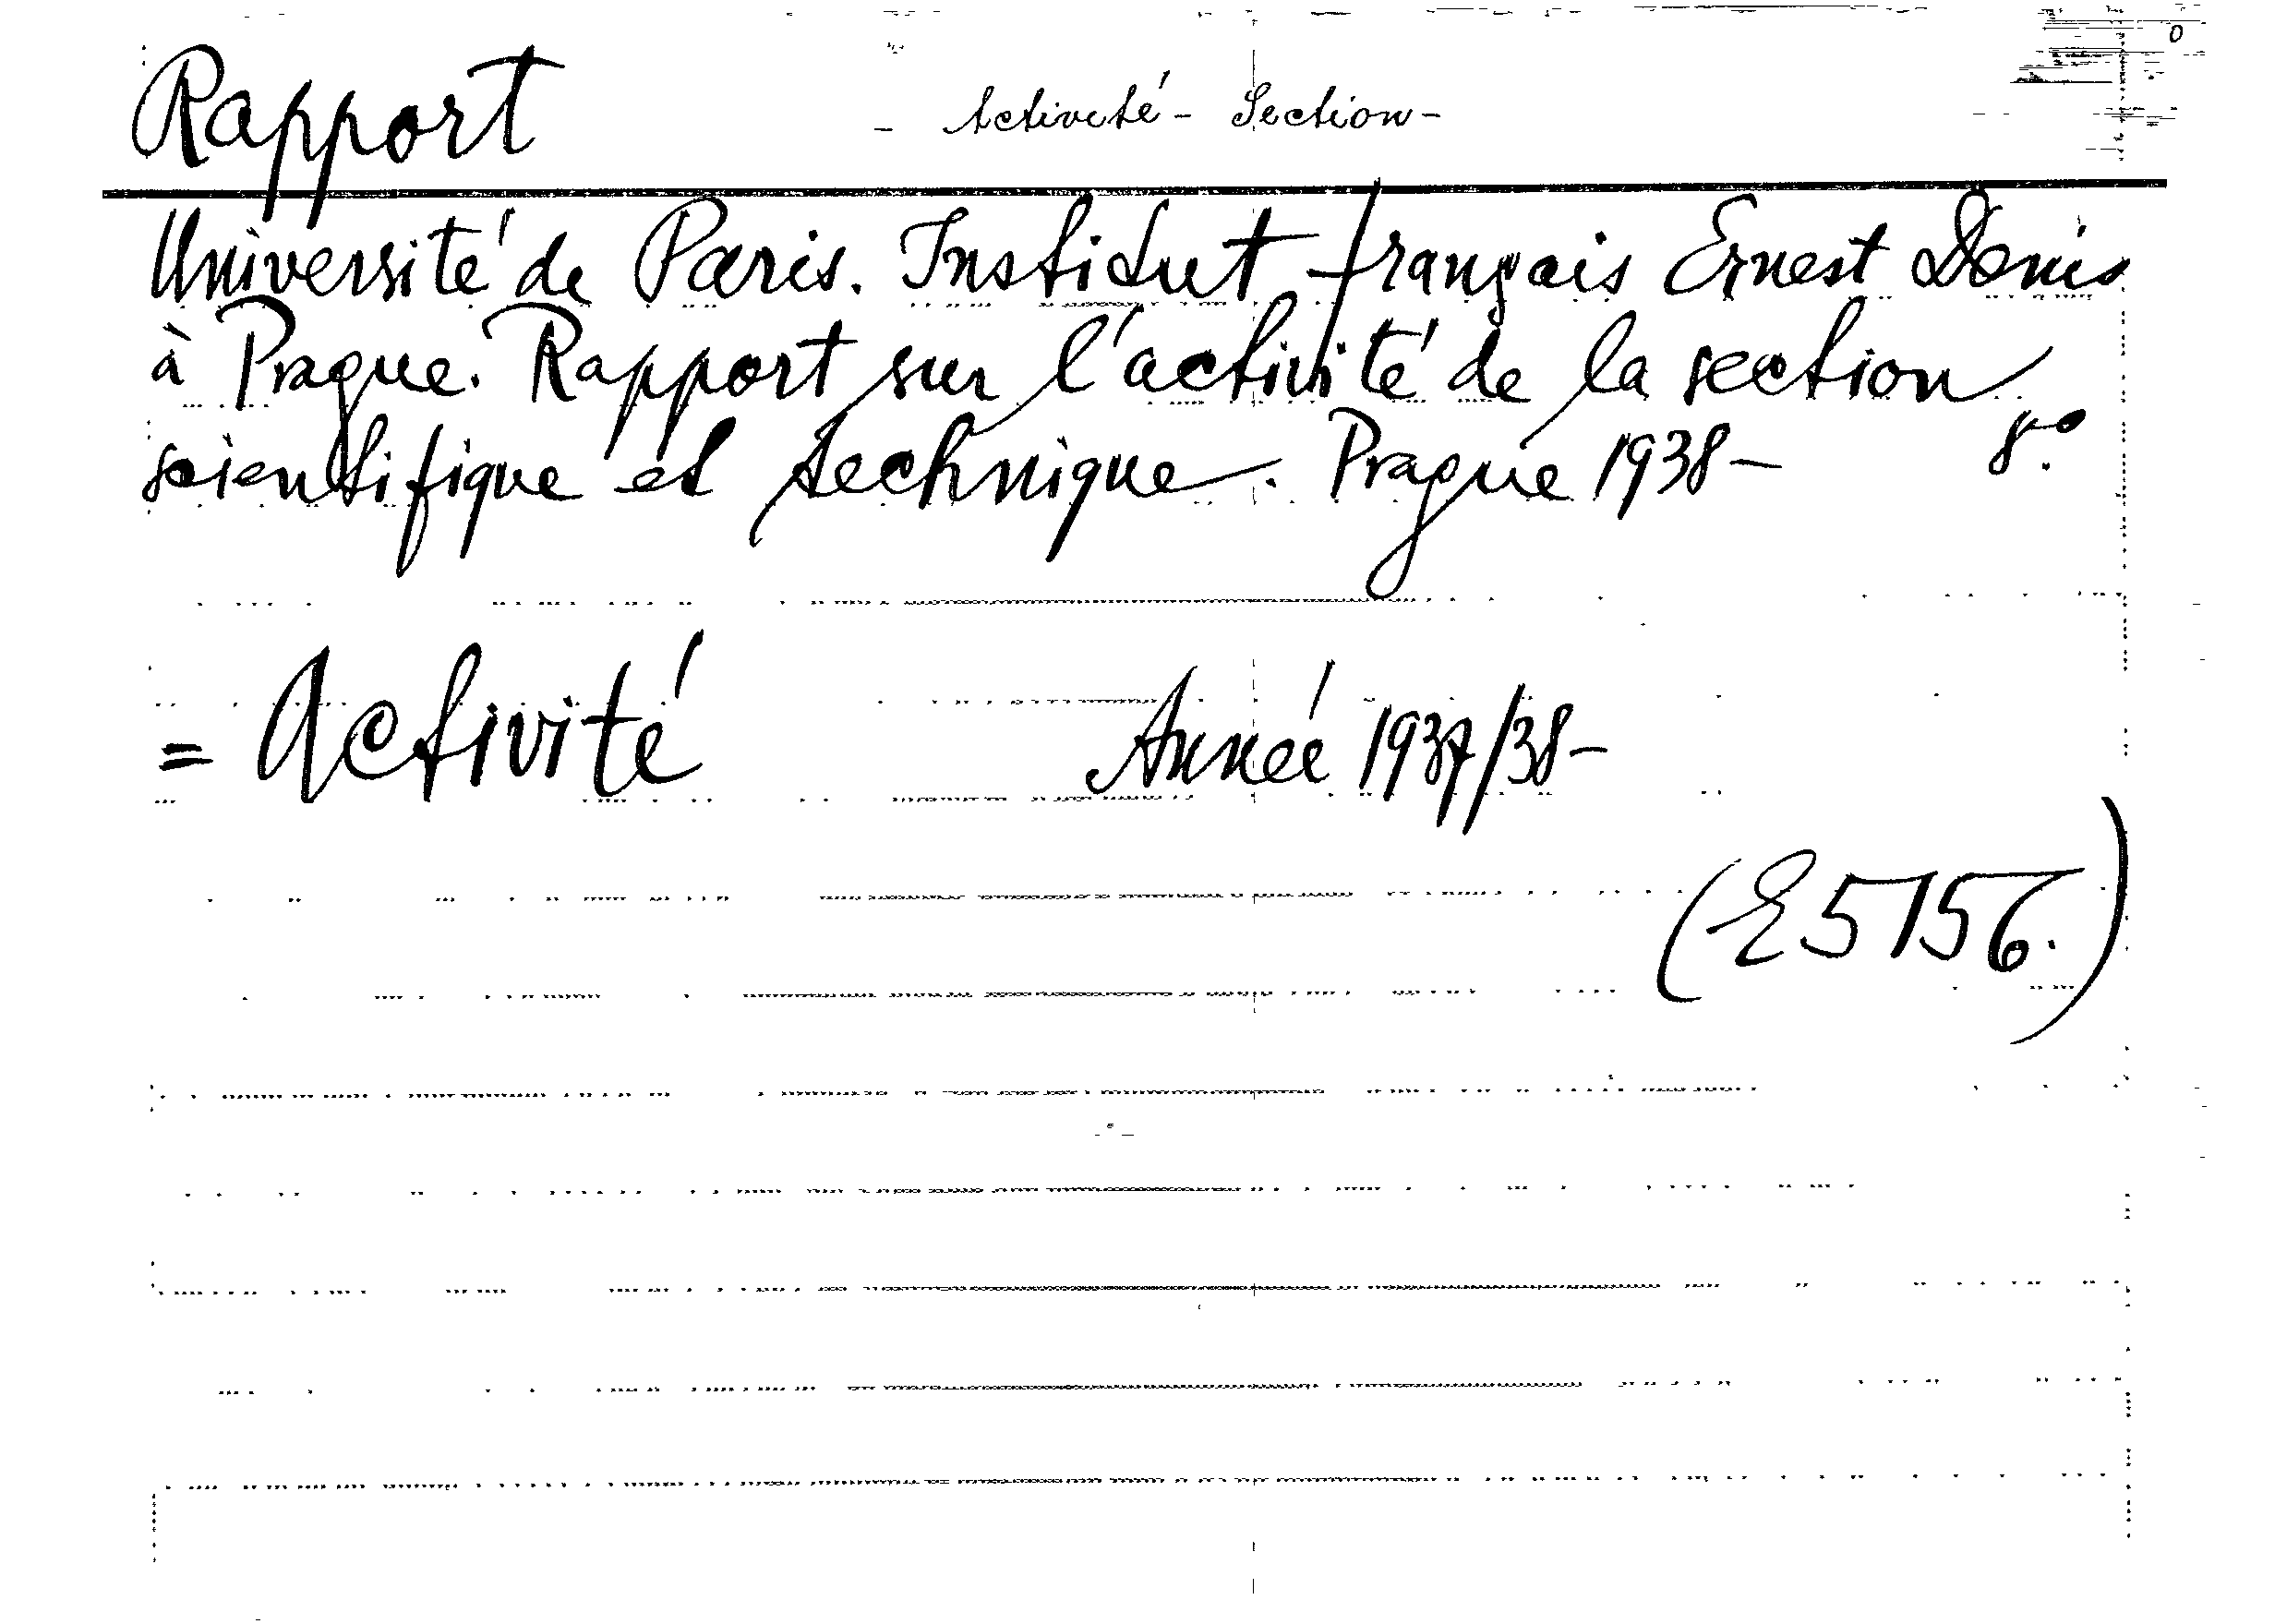 Rapport - Activité - Section -
Université de Paris. Institut français Ernest Denis
à Prague. Rapport sur l'activité de la section
scientifique et technique. Prague 1938- 8°.
= Activité Année 1937/38-
(E 5156.)